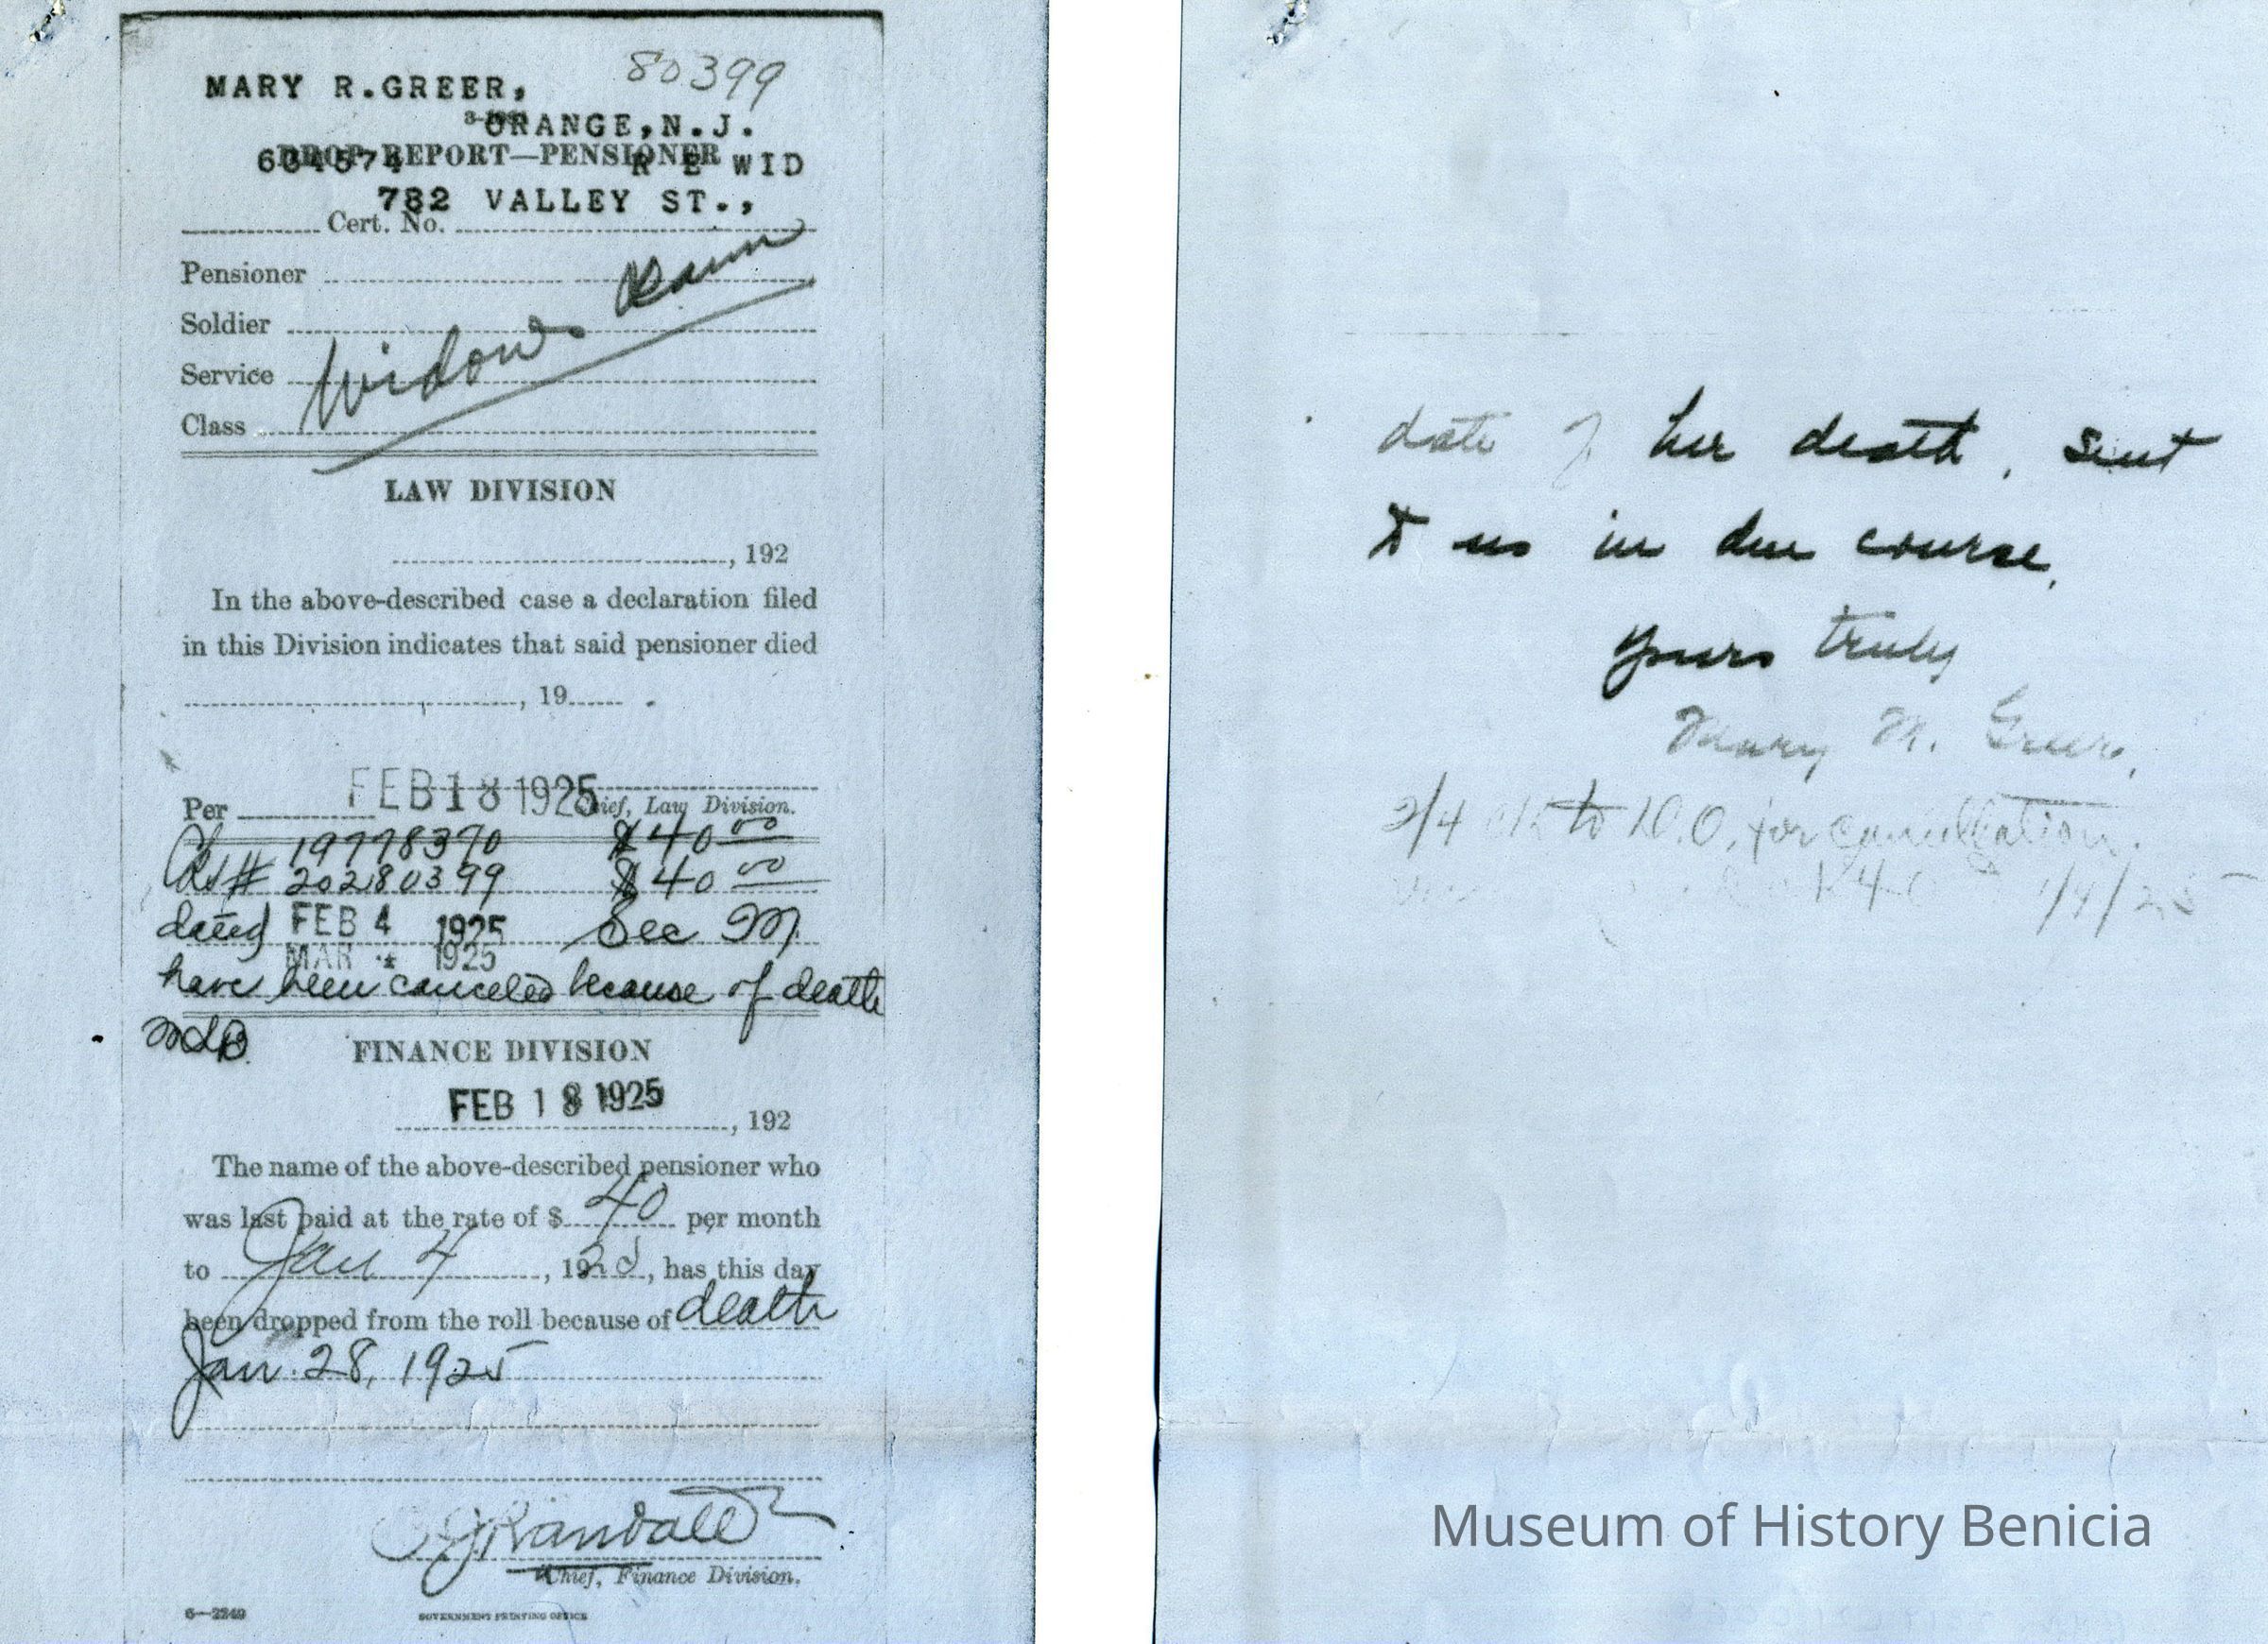 80399
MARY R.GREER,
ORANGE,N.J.
DROP REPORT—PENSIONER
634574 R E WID
782 VALLEY ST.,
Cert. No.
Pensioner
Soldier
Service
Class
Widows
LAW DIVISION
, 192
In the above-described case a declaration filed
in this Division indicates that said pensioner died
, 19
Per FEB 18 1925 Chief, Law Division.
19778370 $40 00
20280399 $40 00
dated FEB 4 1925 Sec M
MAR 4 1925
have been canceled because of death
FINANCE DIVISION
FEB 18 1925
, 192
The name of the above-described pensioner who
was last paid at the rate of $ 40 per month
to Jan 4, 1925, has this day
been dropped from the roll because of death
Jan. 28, 1925
Randall
Chief, Finance Division.
6—2249 GOVERNMENT PRINTING OFFICE
date of her death, sent
to us in due course,
Yours truly
Mary M. Greer,
2/4 ck to D.O. for cancellation.
Museum of History Benicia